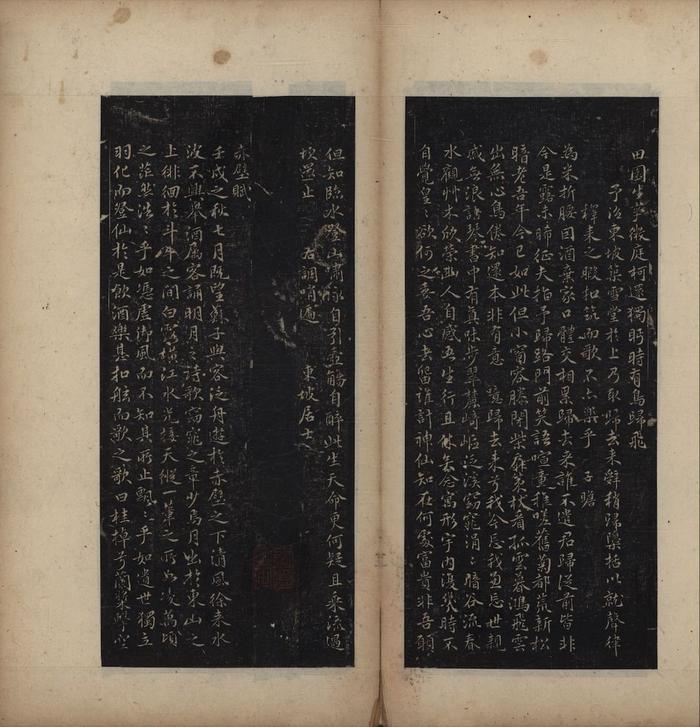 田園生夢㣲庭柯還獨盻時有鳥歸飛
予治東坡築雪堂於上乃取歸去來辭稍歸檃括以就聲律
釋耒之暇扣筑而歌不亦樂乎 子瞻
為米折腰因酒棄家口體交相累歸去來誰不遣君歸從前皆非
今是露未晞征夫指予歸路門前笑語喧童稚嗟舊菊都荒新松
暗老吾年今已如此但小窗容膝閉柴扉策杖看孤雲暮鴻飛雲
出無心鳥倦知還本非有意 噫歸去來兮我今忘我兼忘世親
戚無浪語琴書中有真味步翠麓崎嶇泛溪窈窕涓涓暗谷流春
水觀草木欣榮幽人自感吾生行且休矣念寓形宇內復幾時不
自覺皇皇欲何之委吾心去留誰計神仙知在何處富貴非吾願
但知臨水登山嘯詠自引壺觴自醉此生天命更何疑且乘流遇
坎還止 右調哨遍 東坡居士
赤壁賦
壬戌之秋七月既望蘇子與客泛舟遊於赤壁之下清風徐來水
波不興舉酒屬客誦明月之詩歌窈窕之章少焉月出於東山之
上徘徊於斗牛之間白露橫江水光接天縱一葦之所如凌萬頃
之茫然浩浩乎如憑虛御風而不知其所止飄飄乎如遺世獨立
羽化而登仙於是飲酒樂甚扣舷而歌之歌曰桂棹兮蘭槳擊空